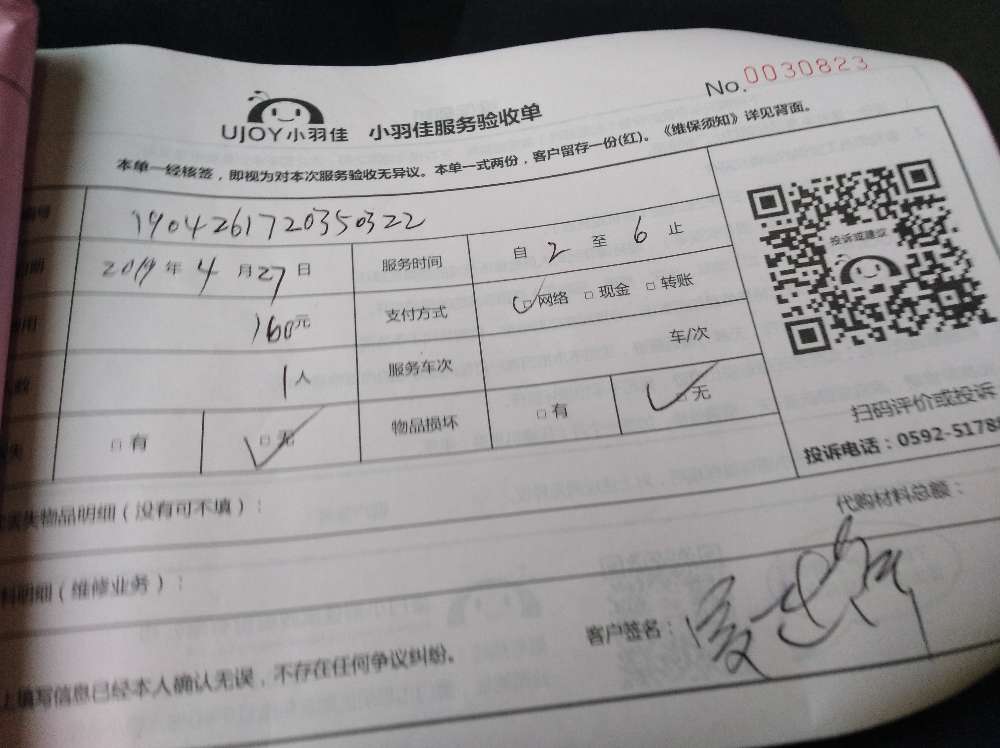 No.0030823
UJOY小羽佳 小羽佳服务验收单
本单一经核签，即视为对本次服务验收无异议。本单一式两份，客户留存一份(红)。《维保须知》详见背面。
编号 1904261720350322
2019年4月27日 服务时间 自2至6止
160元 支付方式 □网络 □现金 □转账
1人 服务车次 车/次
□有 □无 物品损坏 □有 □无
投诉或建议
扫码评价或投诉
投诉电话：0592-5178
丢失物品明细（没有可不填）：
代购材料总额：
料明细（维修业务）：
客户签名：
上填写信息已经本人确认无误，不存在任何争议纠纷。